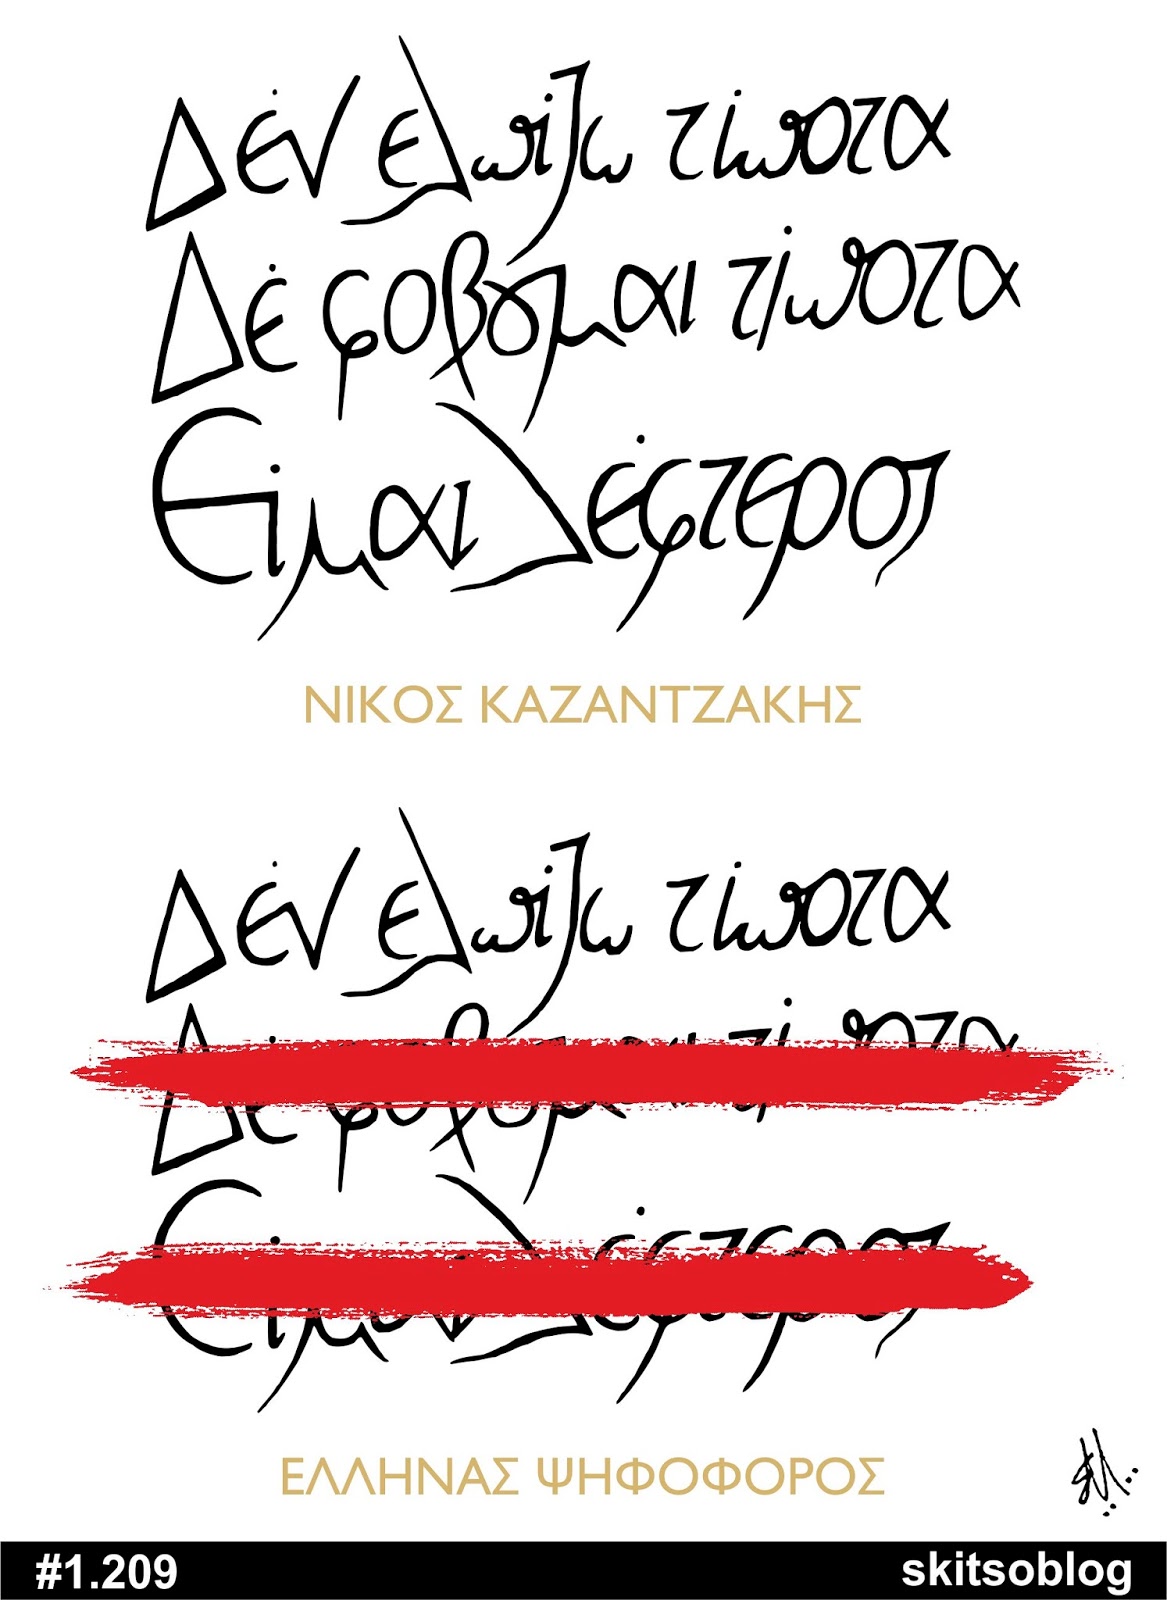 Δέν ελπίζω τίποτα
Δέ φοβȣμαι τίποτα
Είμαι λέφτερος
ΝΙΚΟΣ ΚΑΖΑΝΤΖΑΚΗΣ
Δέν ελπίζω τίποτα
Δέ φοβȣμαι τίποτα
Είμαι λέφτερος
ΕΛΛΗΝΑΣ ΨΗΦΟΦΟΡΟΣ
#1.209
skitsoblog